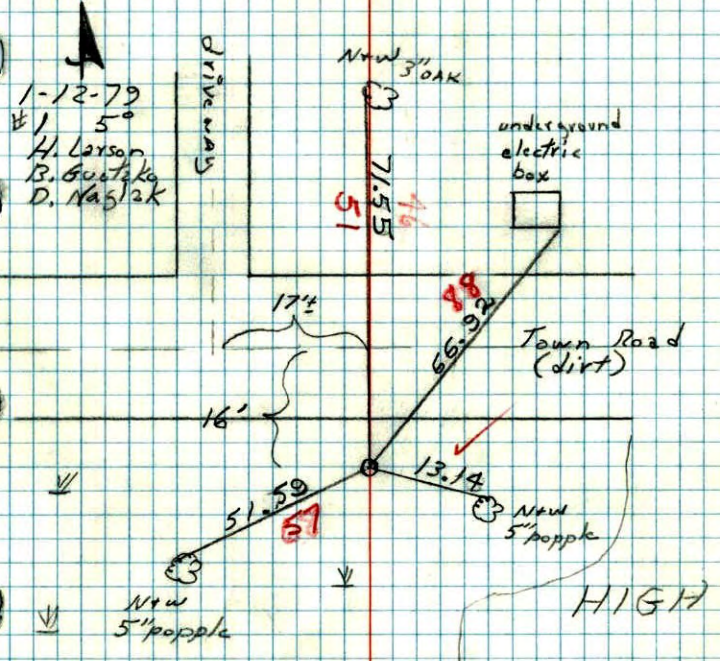 1-12-79
# 1 5°
H. Larson
B. Gvotzko
D. Naglak
driveway
N+W 3" OAK
underground
electric
box
71.55
51
46
88
66.92
17'±
Town Road
(dirt)
16'
13.14
N+W
5" popple
51.59
57
N+W
5" popple
HIGH